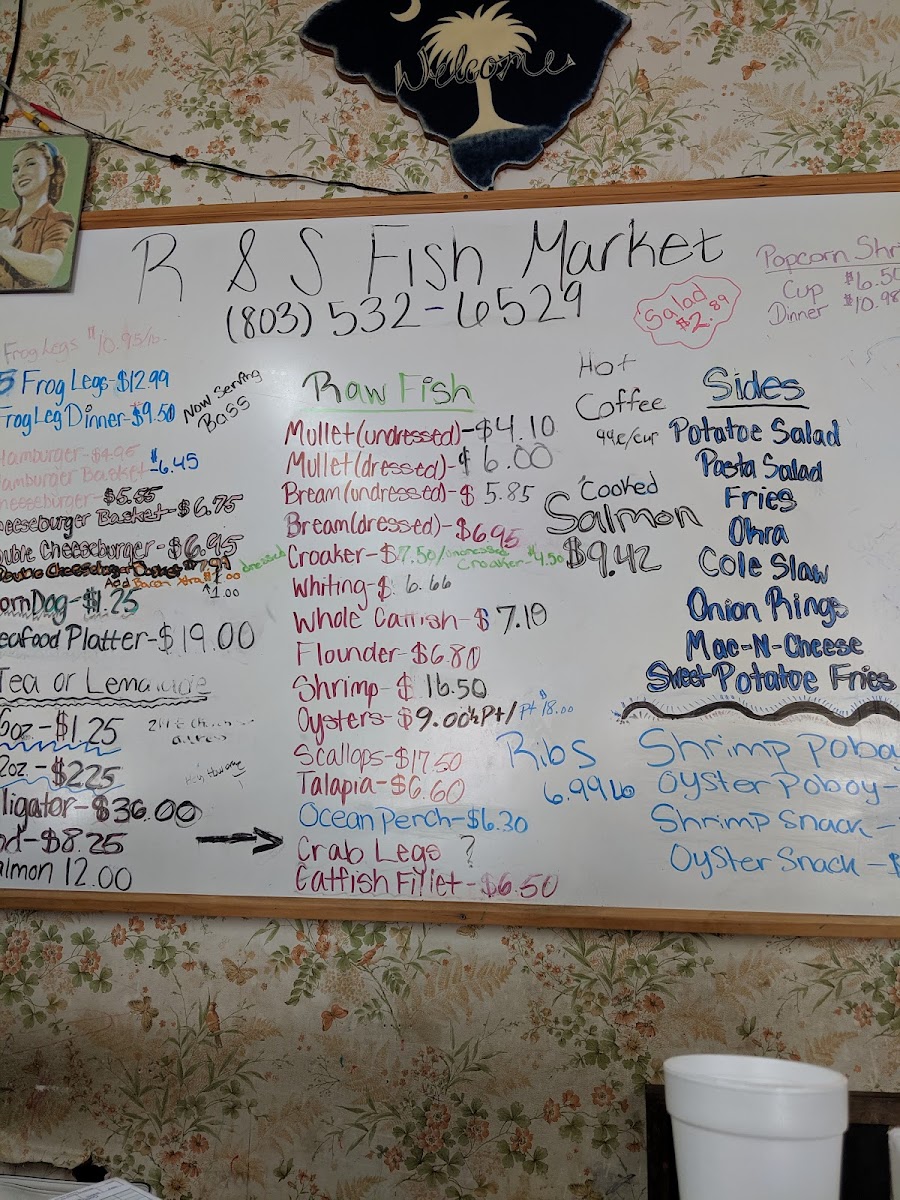 Welcome
R & S Fish Market
(803) 532-6529
Salad
$2.89
Popcorn Shr
Cup $6.50
Dinner $10.98
Frog Legs $10.95/lb.
5 Frog Legs-$12.99
Frog Leg Dinner-$9.50
Now Serving
Bass
Hamburger-$4.95
Hamburger Basket $6.45
heeseburger-$5.55
heeseburger Basket-$6.75
ouble Cheeseburger-$6.95
Double Cheeseburger Basket-$7.94
Add Bacon Xtra $1.00
1.00
ornDog-$1.25
eafood Platter-$19.00
Tea or Lemonade
6oz-$1.25
2oz.-$225
lligator-$36.00
nd-$8.25
almon 12.00
Raw Fish
Mullet(undressed)-$4.10
Mullet(dressed)-$6.00
Bream(undressed)-$5.85
Bream(dressed)-$6.95
dressed Croaker-$7.50/undressed Croaker-$4.50
Whiting-$6.66
Whole Catfish-$7.10
Flounder-$6.80
Shrimp-$16.50
Oysters-$9.00½Pt/Pt $18.00
Scallops-$17.50
Talapia-$6.60
Ocean Perch-$6.30
Crab Legs ?
Catfish Fillet-$6.50
Hot
Coffee
99¢/cup
Cooked
Salmon
$9.42
Ribs
6.99 lb
Sides
Potatoe Salad
Pasta Salad
Fries
Okra
Cole Slaw
Onion Rings
Mac-N-Cheese
Sweet Potatoe Fries
Shrimp Poboy
Oyster Poboy-
Shrimp Snack-
Oyster Snack-$